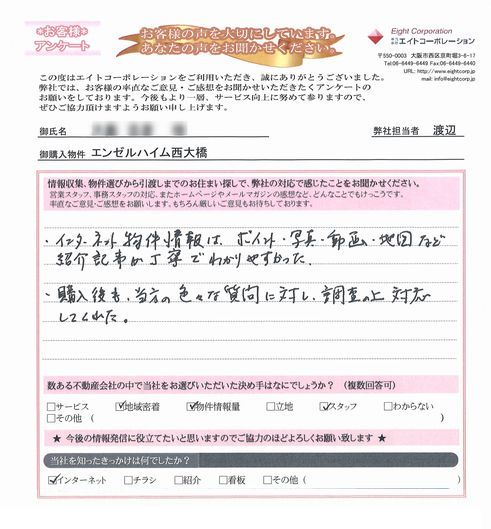 *お客様*
アンケート
お客様の声を大切にしています。
あなたの声をお聞かせください。
Eight Corporation
株式会社エイトコーポレーション
〒550-0003 大阪市西区京町堀3-6-17
Tel:06-6449-6449 Fax:06-6449-6460
URL: http://www.eightcorp.jp
mail: info@eightcorp.jp
この度はエイトコーポレーションをご利用いただき、誠にありがとうございました。
弊社では、お客様の率直なご意見・ご感想をお聞かせいただきたくアンケートの
お願いをしております。今後もより一層、サービス向上に努めて参りますので、
ぜひご協力頂けますようお願い申し上げます。
御氏名
様
弊社担当者 渡辺
御購入物件 エンゼルハイム西大橋
情報収集、物件選びから引渡しまでのお住まい探しで、弊社の対応で感じたことをお聞かせください。
営業スタッフ、事務スタッフの対応、またホームページやメールマガジンの感想など、どんなことでもけっこうです。
率直なご意見・ご感想をお願いします。もちろん厳しいご意見もお待ちしております。
・インターネット物件情報は、ポイント・写真・動画・地図など
紹介記事が丁寧でわかりやすかった。
・購入後も、当方の色々な質問に対し、調査の上対応
してくれた。
数ある不動産会社の中で当社をお選びいただいた決め手はなにでしょうか？（複数回答可）
□サービス ☑地域密着 ☑物件情報量 □立地 ☑スタッフ □わからない
□その他（ ）
★ 今後の情報発信に役立てたいと思いますのでご協力のほどよろしくお願い致します ★
当社を知ったきっかけは何でしたか？
☑インターネット □チラシ □紹介 □看板 □その他（ ）